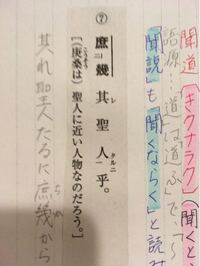 聞道[キクナラク](聞くと、
語原…道は道ふで、
聞説」も「聞くならく」と読み
⑦
庶二幾其レ聖人タルニ乎。
こうそう
[(庚桑は)聖人に近い人物なのだろう。]
其れ聖人たるに庶幾から